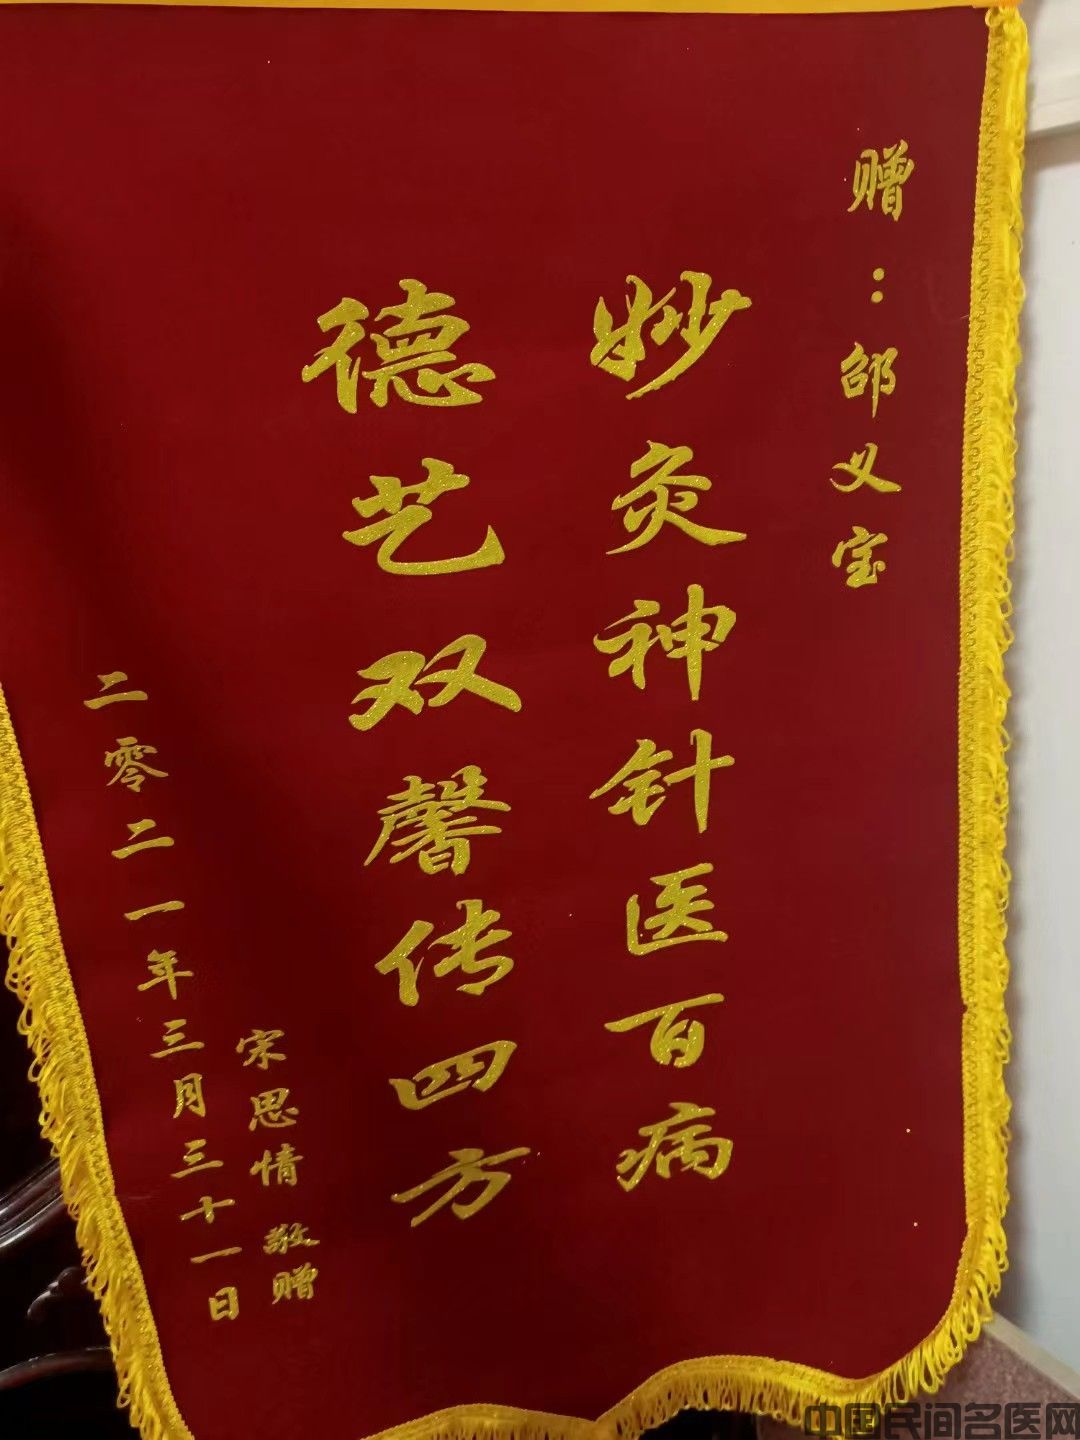 赠：邵义宝
妙灸神针医百病
德艺双馨传四方
宋思情 敬赠
二零二一年三月三十一日
中国民间名医网